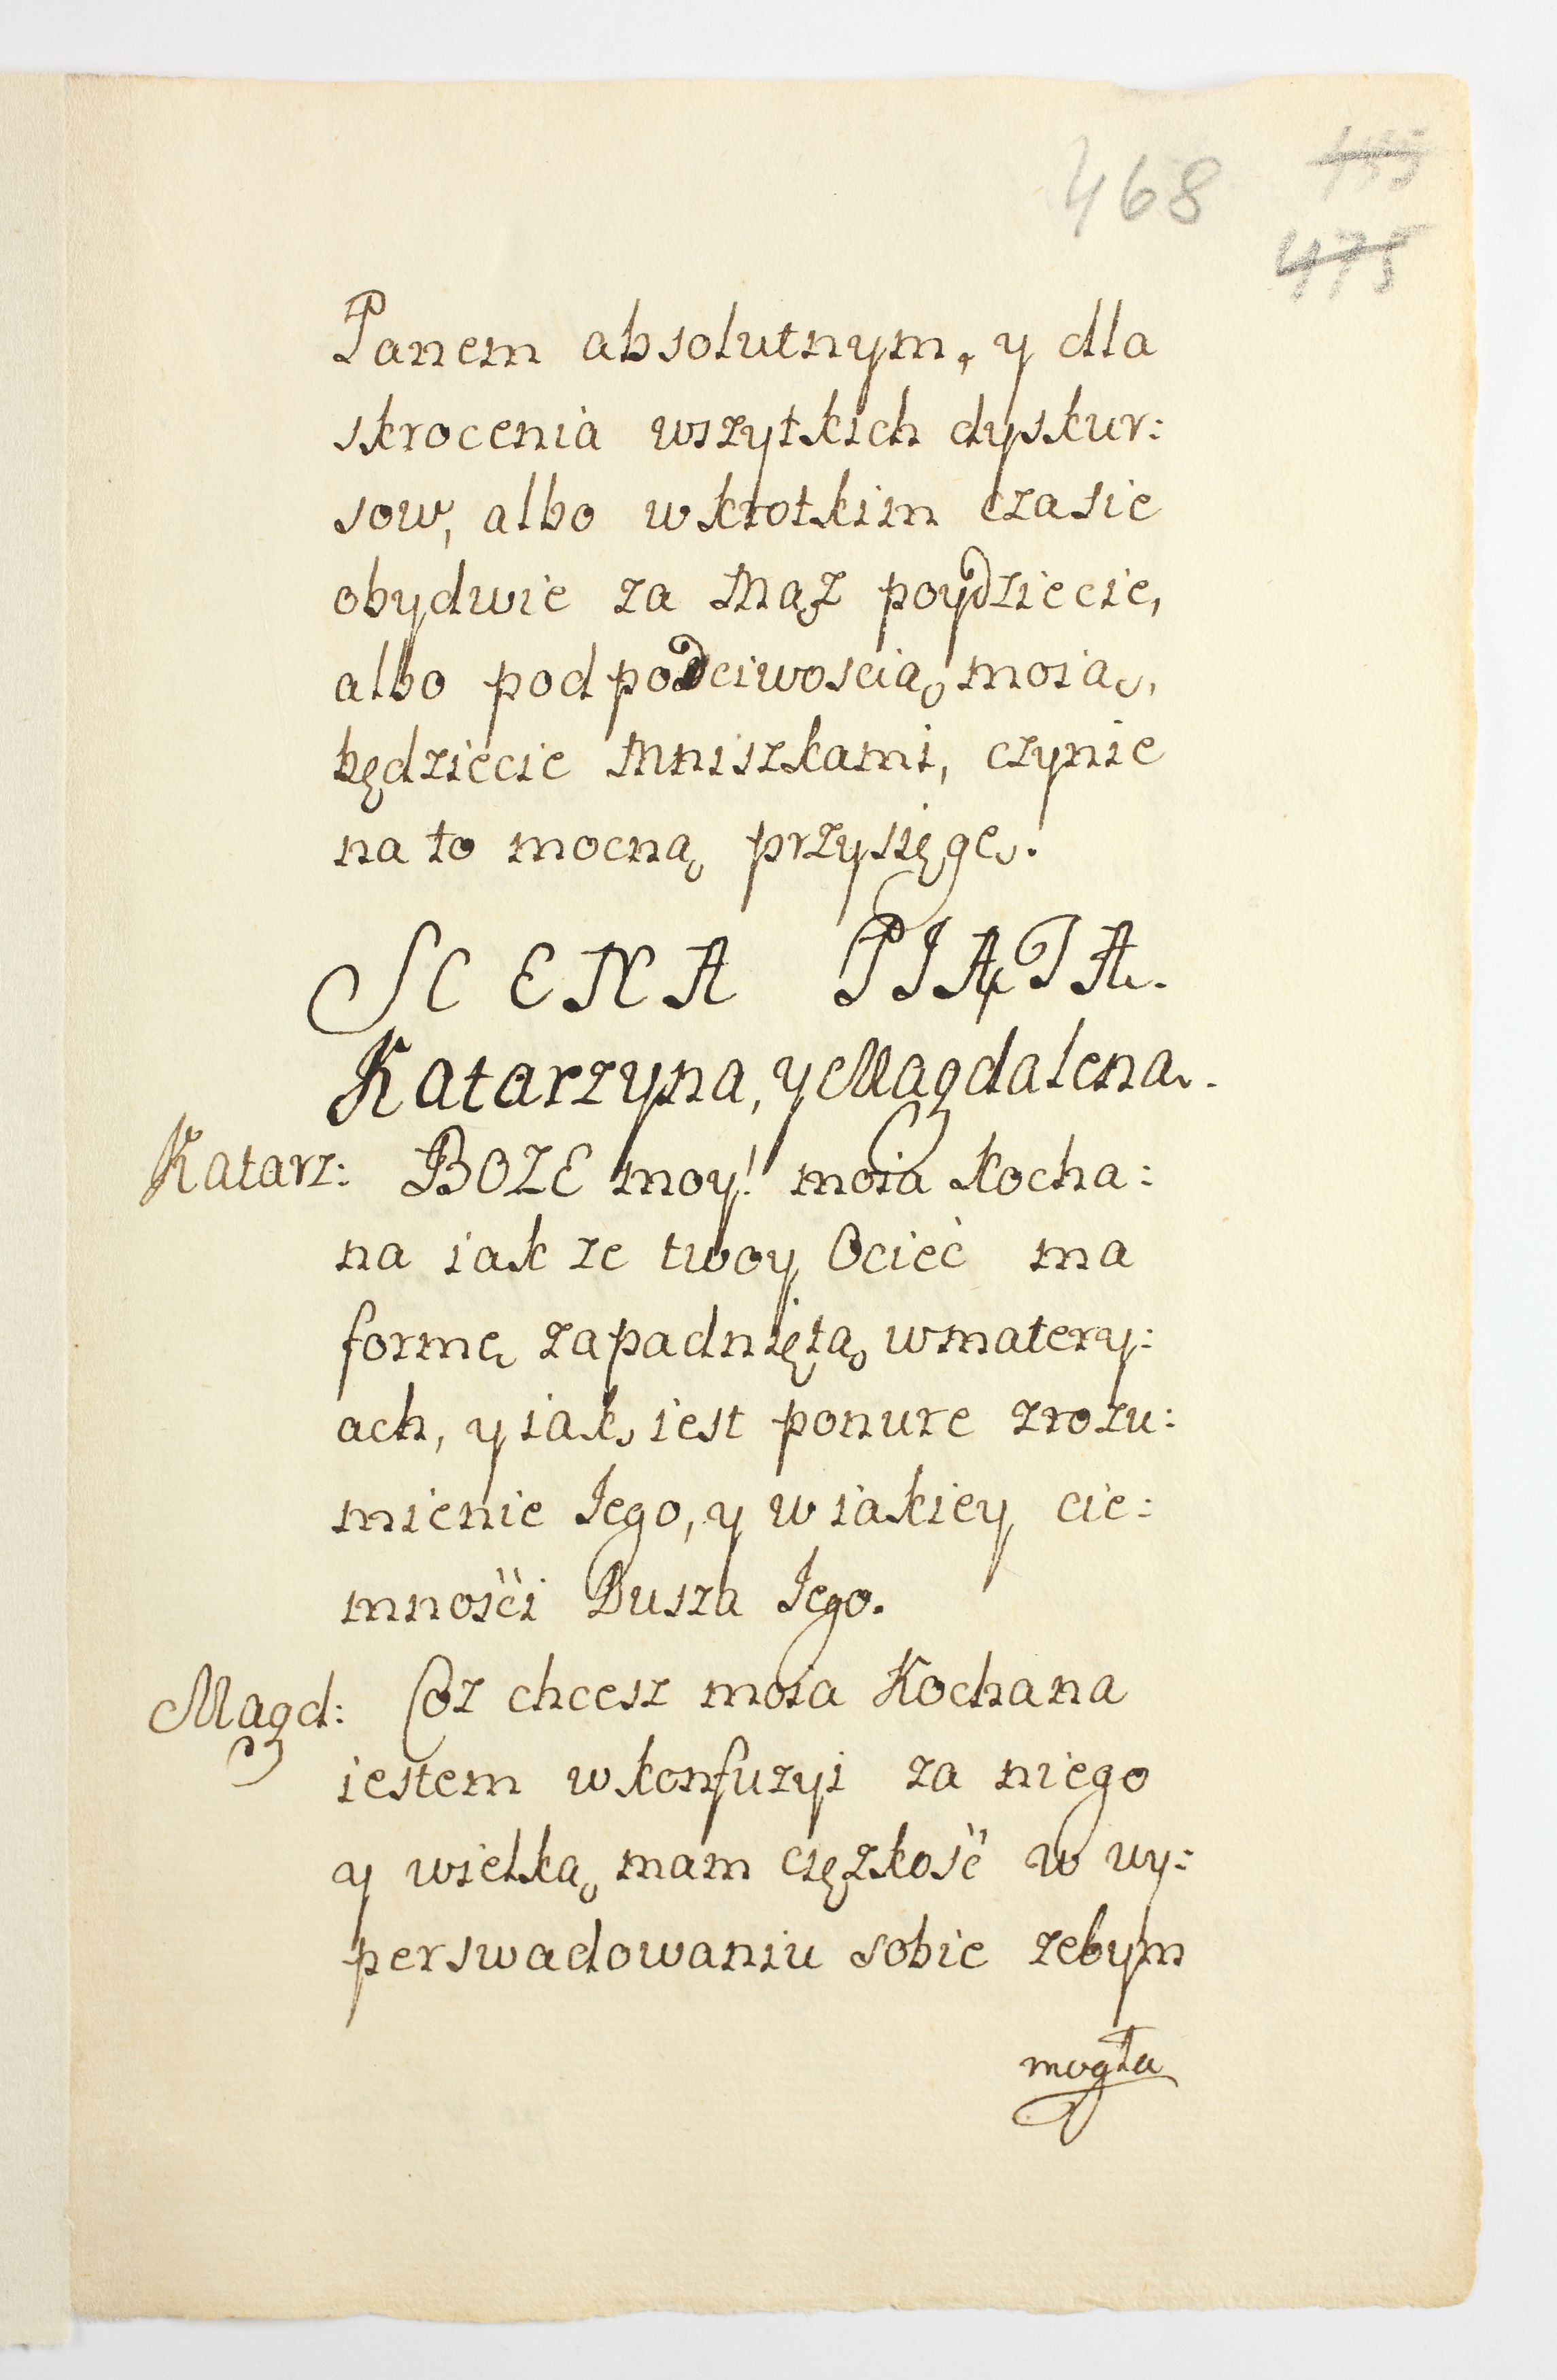 468
475
Panem absolutnym, y dla
skrocenia wszytkich dyskur:
sow, albo wkrotkim czasie
obydwie za Mąz poydziecie,
albo pod podciwoscią moią,
będziecie Mniszkami, czynie
na to mocną przysięgę.
SCENA PIĄTA.
Katarzyna, y Magdalena.
Katarz: BOZE moy! moia kocha:
na iak ze twoy Ociec ma
formę zapadniętą wmatery:
ach, y iak iest ponure zrozu:
mienie Iego, y w iakiey cie:
mnośći Dusza Iego.
Magd: Coz chcesz moia Kochana
iestem wkonfuzyi za niego
y wielką mam cięzkość w wy:
perswadowaniu sobie zebym
mogła